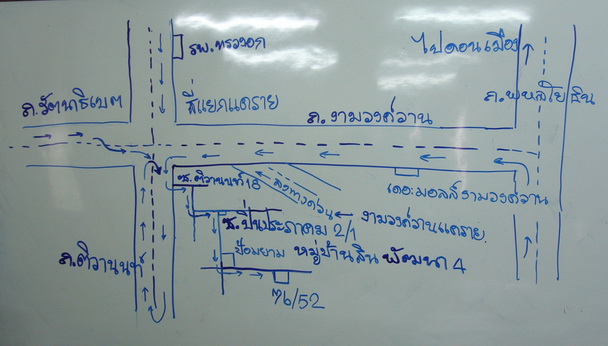 รพ.ทรวงอก
ไปดอนเมือง
ถ.รัตนาธิเบต
สี่แยกแคราย
ถ.งามวงศ์วาน
ถ.พหลโยธิน
ซ.ติวานนท์18
ลงทางด่วน
เดอะมอลล์งามวงศ์วาน
ซ.ปิ่นประภาคม 2/1
งามวงศ์วานแคราย
ถ.ติวานนท์
ป้อมยาม หมู่บ้านสินพัฒนา 4
76/52